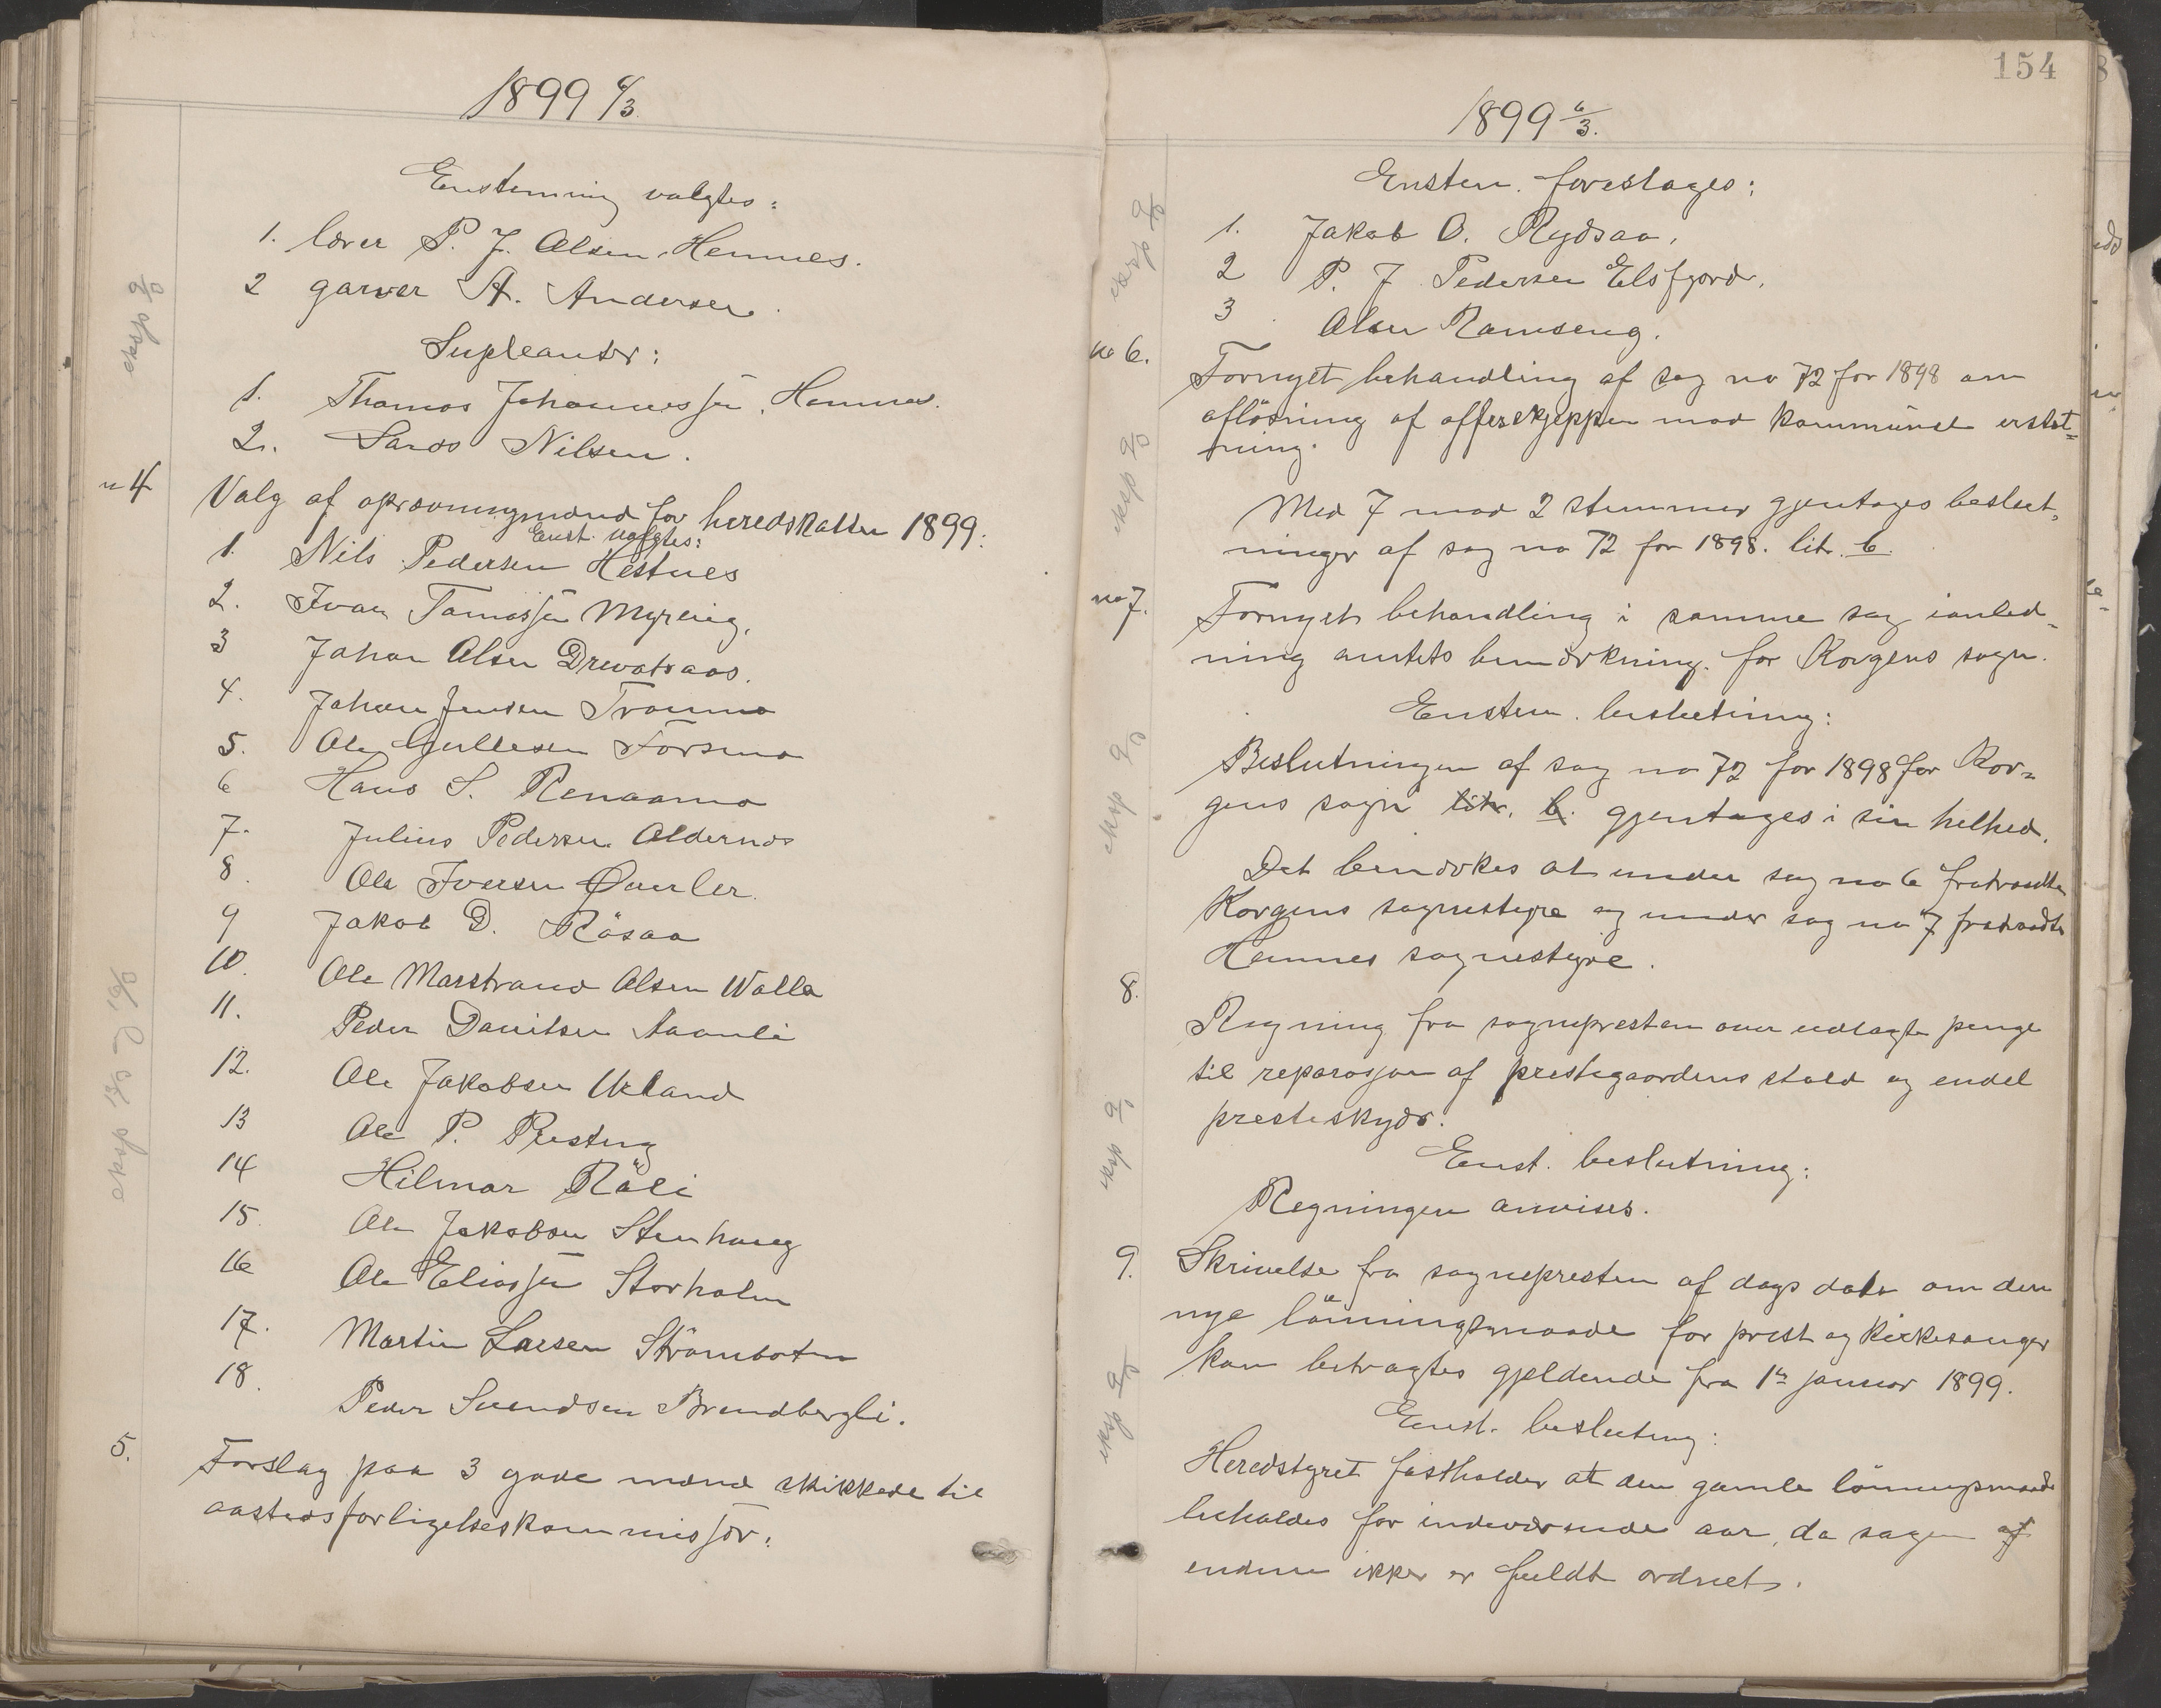 1899 6/3.
Enstemmig valgtes:
1. lærer P. J. Olsen, Hemnes.
2 garver A. Andersen.
Supleanter:
1. Thomas Johannessen, Hemnes.
2. Lards Nilsen.
n 4 Valg af oprovningsmænd for heredskatten 1899:
Enst. valgtes:
1. Nils Pedersen Hestnes
2. Ivar Tomassen Myreng.
3 Johan Olsen Drevatsaas.
4. Johan Jensen Tronmo
5. Ole Gullesen Forsmo
6 Hans S. Renaamo
7. Julius Pedersen Oldernes
8. Ole Iversen
9 Jakob D. Rösaa
10. Ole Marstrand Olsen Walla
11. Peder Davitsen Aaenli
12. Ole Jakobsen Ukland
13 Ole P. Presteng
14 Hilmar Röli
15. Ole Jakobsen Stenhaug
16 Ole Eliassen Storholm
17. Martin Larsen Strömboten
18. Peder Svendsen Brendbergli.
5. Forslag paa 3 gode mænd skikkede til
aastedsforligelseskommissör:
eksp 9/3
154
1899 6/3.
Enstem. foreslages:
1. Jakob O. Rydsaa,
2 P. J. Pedersen Elsfjord,
3 Olsen Ramseng.
no 6. Fornyet behandling af sag no 72 for 1898 om
aflösning af offerskjeppen mod kommunal erstat=
ning.
Med 7 mod 2 stemmer gjentages beslut-
ninger af sag no 72 for 1898. litr. b.
no 7. Fornyet behandling i samme sag ianled-
ning amtets bemærkning. for Korgens sogn.
Enstem. beslutning:
Beslutningen af sag no 72 for 1898 for Kor=
gens sogn litr. b. gjentages i sin helhed.
Det bemærkes at under sag no 6 fratraadte
Korgens sognestyre og under sag no 7 fratraadte
Hemnes sognestyre.
8. Regning fra sognepresten over udlagte penge
til reparasjon af prestegaardens stald og endel
presteskyds.
Enst. beslutning:
Regningen anvises.
9. Skrivelse fra sognepresten af dags dato om den
nye lönningsmaade for prest og kirkesanger
kan betragtes gjeldende fra 1ste januar 1899.
Enst. beslutning:
Heredstyret fastholder at den gamle lönningsmaade
beholdes for indeværende aar, da sagen af
endnu ikke er fuldt ordnet.
eksp 9/3
eksp 9/3
eksp 9/3
eksp 9/3
eksp 9/3